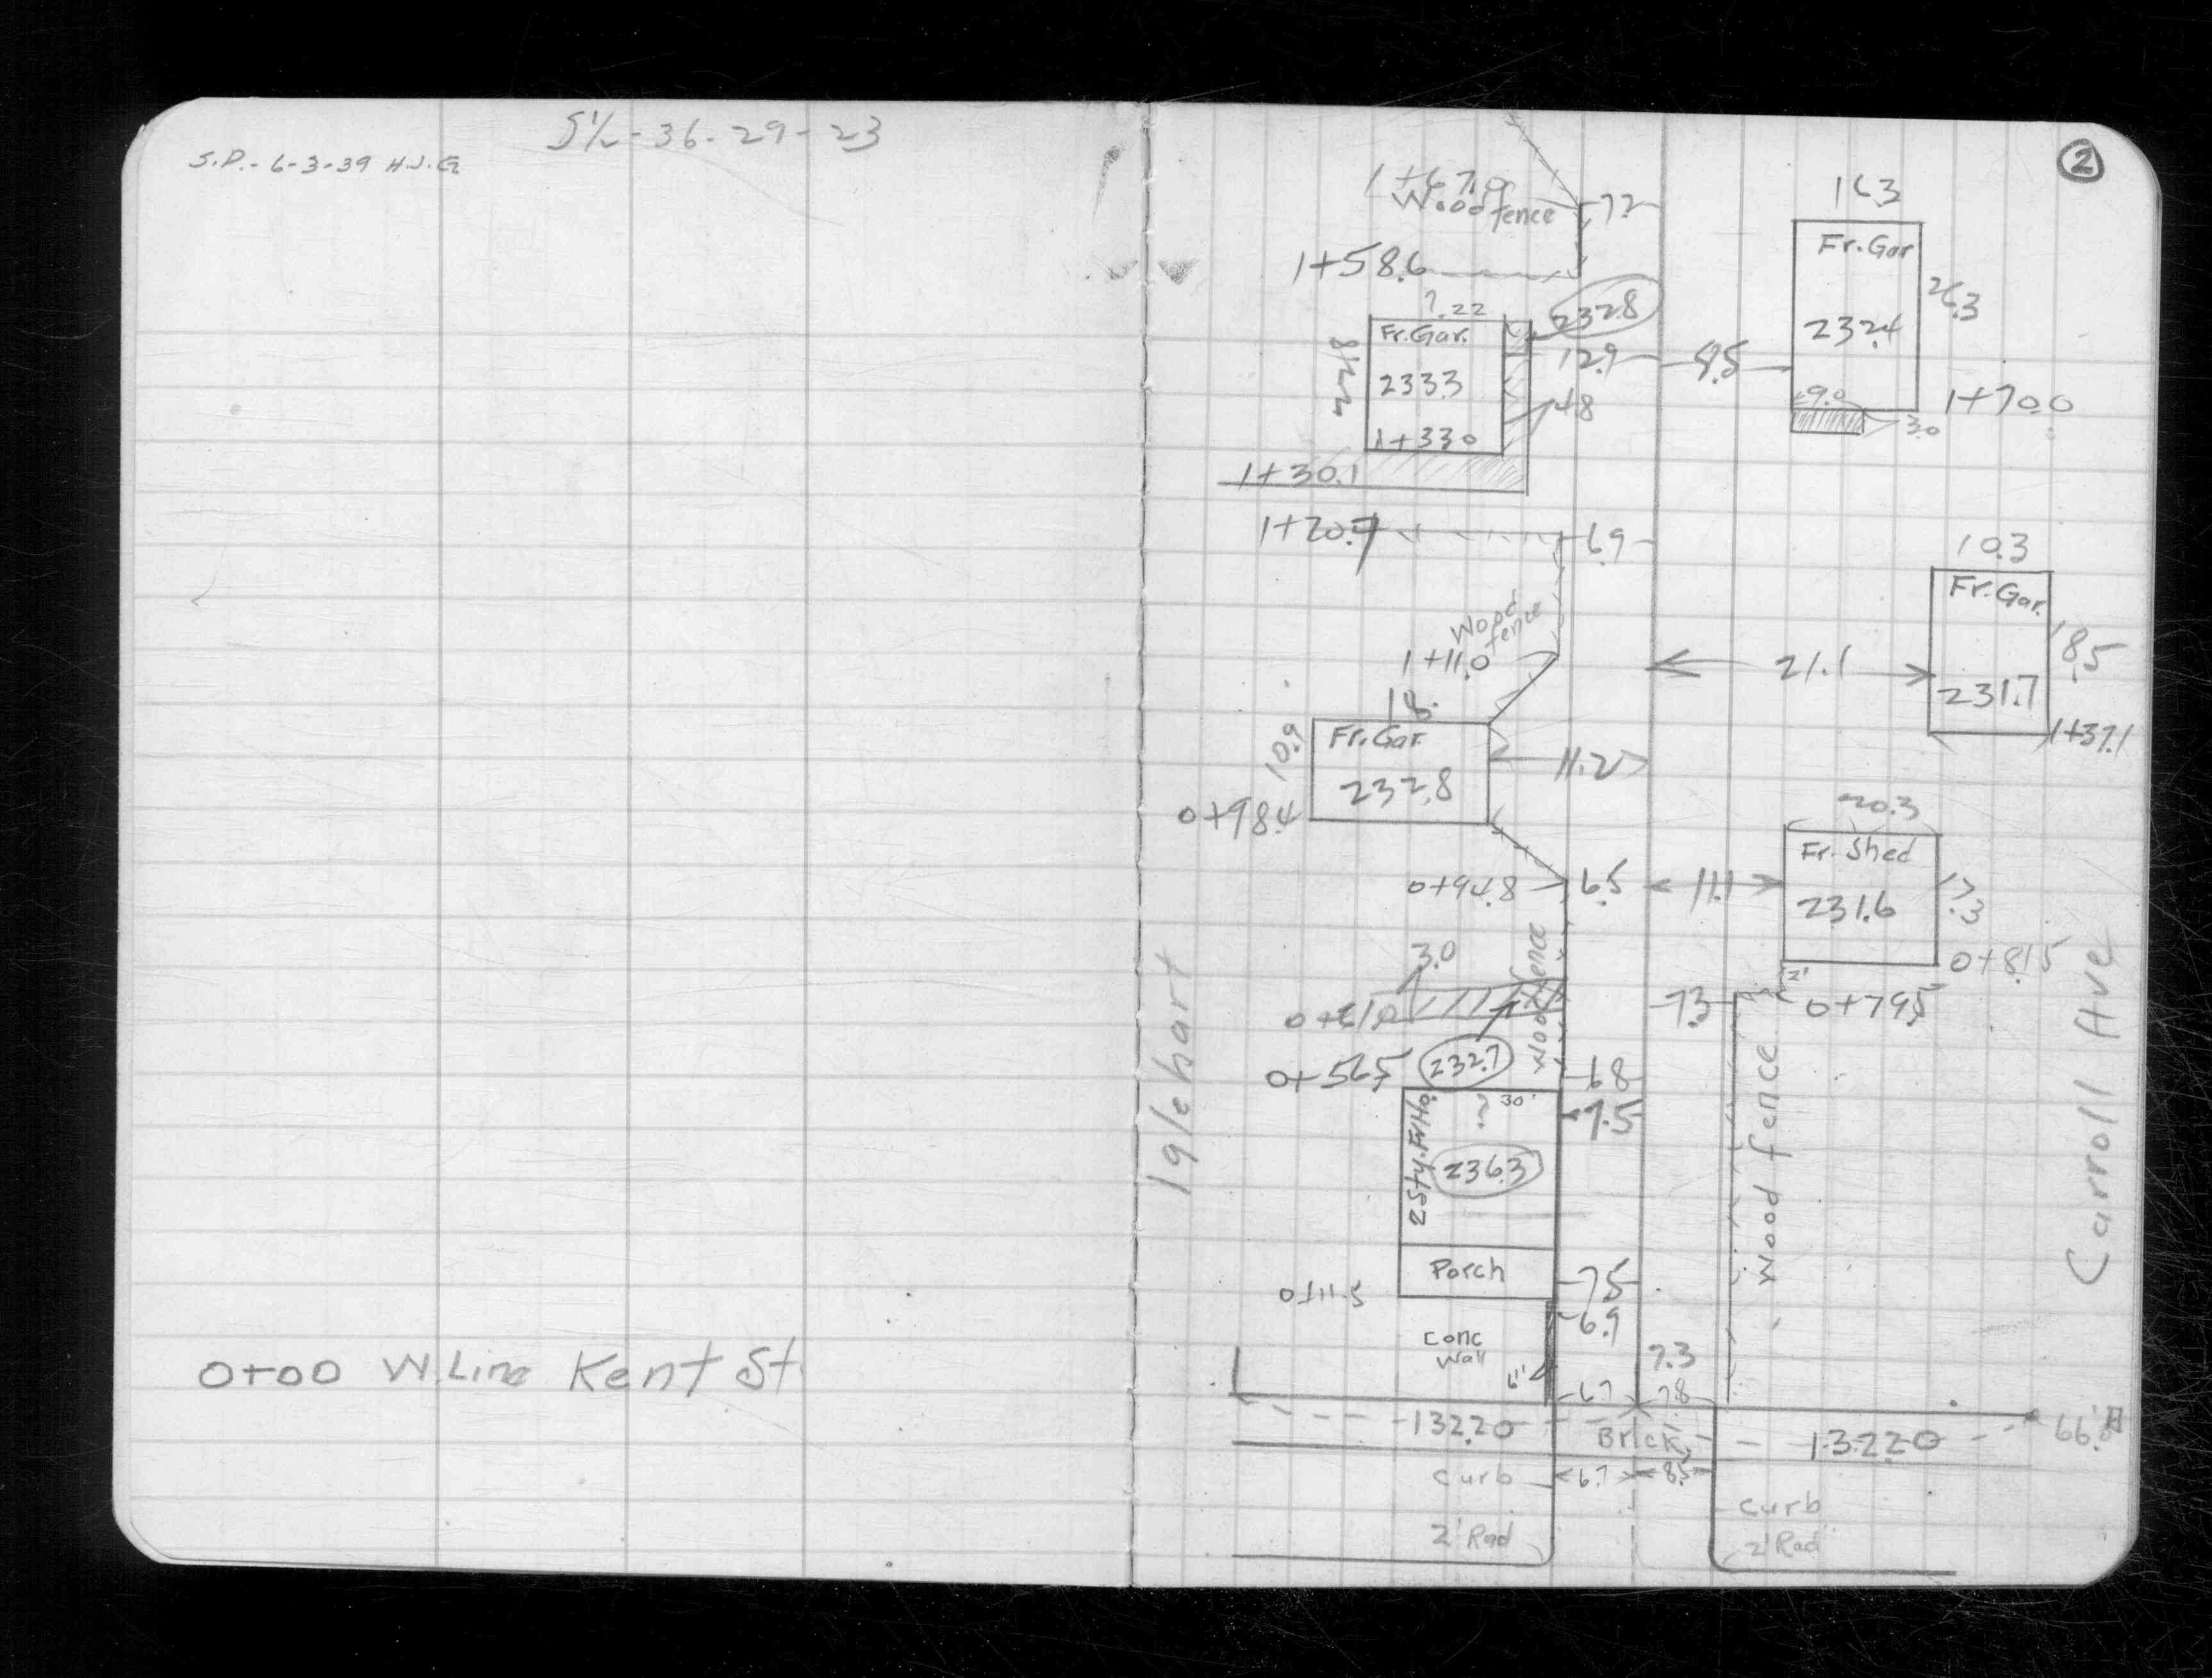 S½-36-29-23
S.P.- 6-3-39 H.J.G
0+00 W.Line Kent St.
2
1+67.0
Wood fence
7.2
16.3
Fr.Gar
232.4
26.3
1+58.6
?.22
232.8
Fr.Gar.
233.3
1+33.0
12.9
9.5
4.8
9.0
3.0
1+70.0
1+30.1
1+20.7
6.9
10.3
Fr.Gar.
18.5
231.7
1+37.1
Wood fence
1+11.0
21.1
18.
Fr.Gar.
10.9
232.8
11.2
0+98.4
20.3
Fr. Shed
231.6
17.3
0+81.5
0+94.8
6.5
11.1
Wood fence
3.0
2'
7.3
0+79.5
0+56.5
232.7
6.8
30'
?
7.5
2 Sty.Fr.Ho.
236.3
Wood fence
Iglehart
Carroll Ave
Porch
7.5
0+11.5
6.9
Conc Wall
6"
7.3
6.7
7.8
132.20
Brick
132.20
Curb
6.7
8.5
Curb
2' Rad
2' Rad